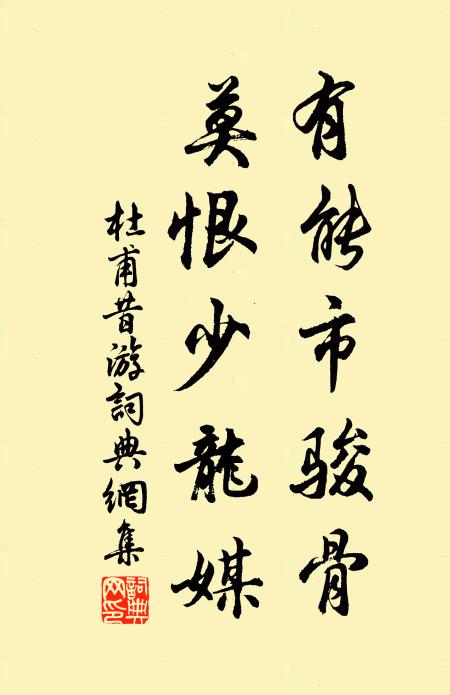 有能市骏骨
莫恨少龍媒
杜甫昔游詞典網集
詞典網印